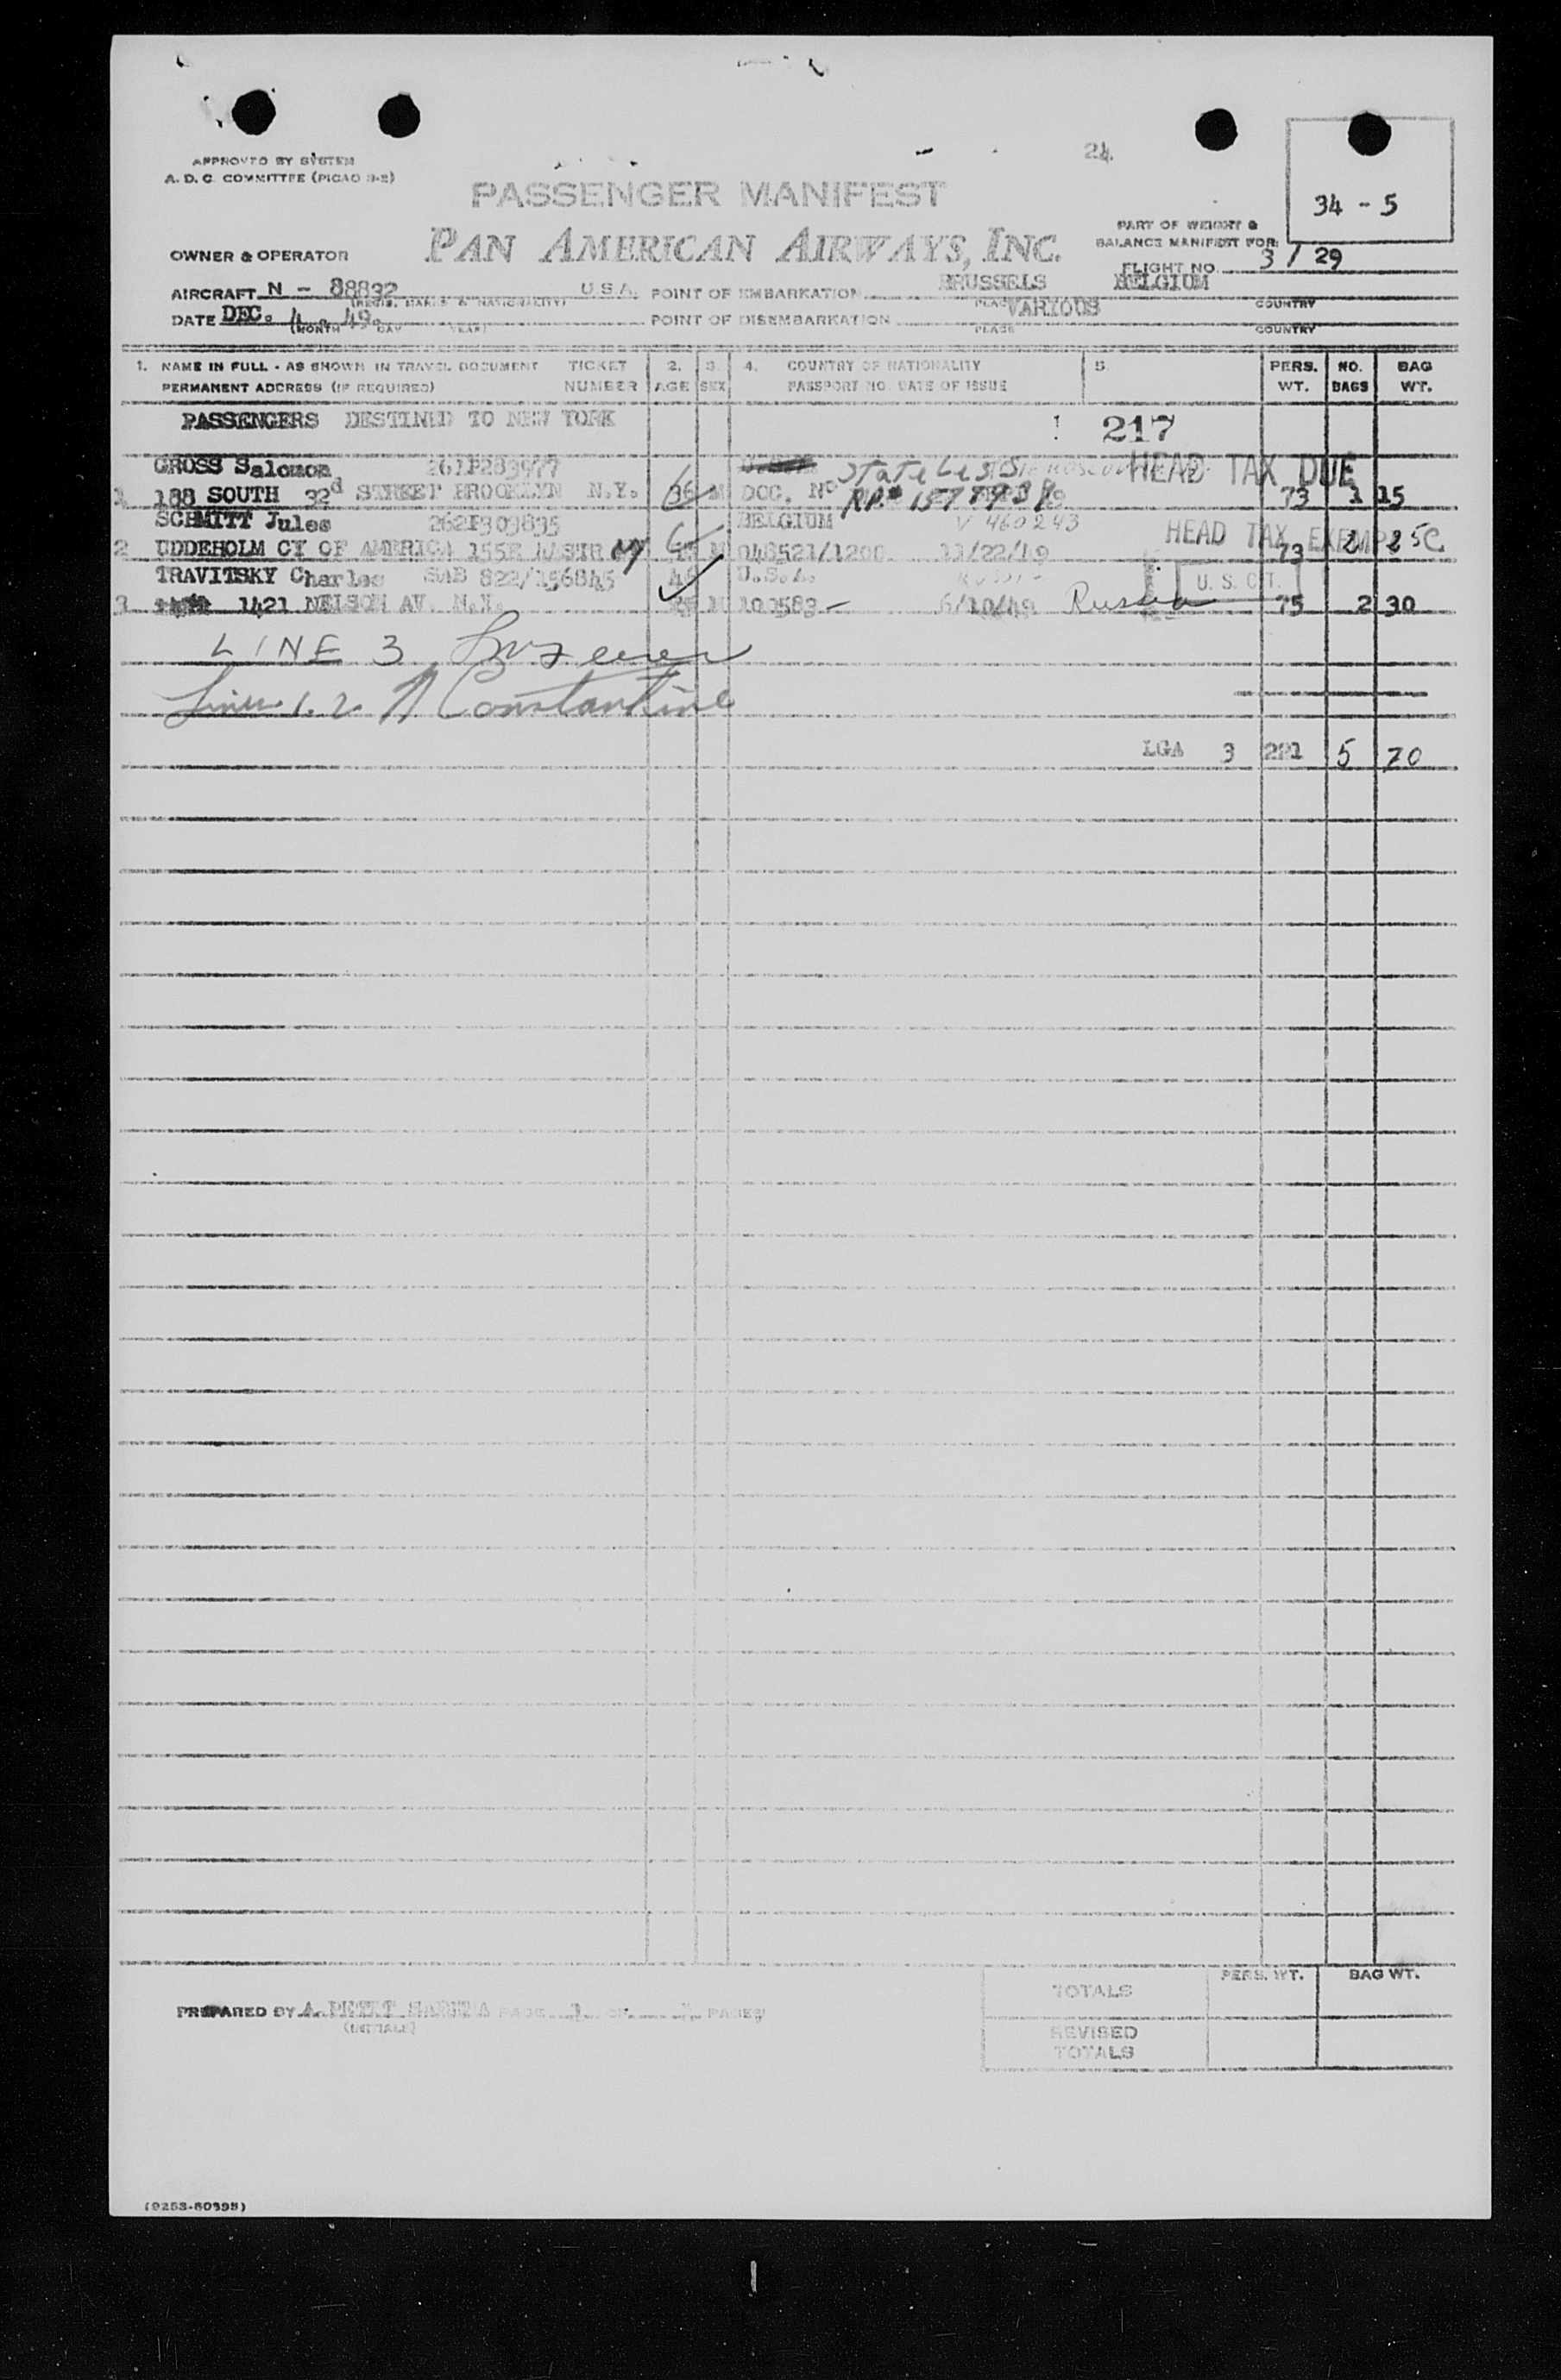 24
APPROVED BY SYSTEM
A. D. C. COMMITTEE (PICAO 9-2)
PASSENGER MANIFEST
34 - 5
PAN AMERICAN AIRWAYS, INC.
PART OF WEIGHT &
BALANCE MANIFEST FOR:
FLIGHT NO. 3 / 29
OWNER & OPERATOR
AIRCRAFT N - 88832 U.S.A. POINT OF EMBARKATION BRUSSELS BELGIUM
(REGIS. MARKS & NATIONALITY) PLACE COUNTRY
DATE DEC. 4. 49. POINT OF DISEMBARKATION VARIOUS
(MONTH DAY YEAR) PLACE COUNTRY
1. NAME IN FULL - AS SHOWN IN TRAVEL DOCUMENT TICKET 2. 3. 4. COUNTRY OF NATIONALITY 5. PERS. NO. BAG
PERMANENT ADDRESS (IF REQUIRED) NUMBER AGE SEX PASSPORT NO. DATE OF ISSUE WT. BAGS WT.
PASSENGERS DESTINED TO NEW YORK 217
GROSS Salomon 261P283977 Stateless HEAD TAX DUE
1 188 SOUTH 32d STREET BROOKLYN N.Y. 36 M DOC. No 73 1 15
SCHMITT Jules 262P303835 BELGIUM V 460243 HEAD TAX EXEMPT
2 UDDEHOLM CY OF AMERICA 155E NY M 048521/1200 11/22/49 73 2 25
TRAVITSKY Charles SAB 822/156845 U.S.A. U. S. CIT.
3 1421 NELSON AV. N.Y. M 100583 6/10/49 Russia 75 2 30
LINE 3
Lines 1.2 Constantine
LGA 3 221 5 70
PREPARED BY A. PAGE 1 OF 1 PAGES
(INITIALS)
PERS. WT. BAG WT.
TOTALS
REVISED
TOTALS